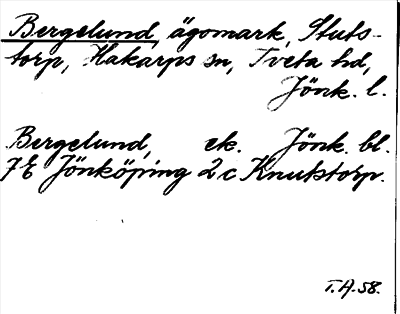 Bergelund, ägomark, Stuts-
torp, Hakarps sn, Tveta hd,
Jönk. l.
Bergelund, ek. Jönk. bl.
7E Jönköping 2c Knutstorp.
T.A.58.